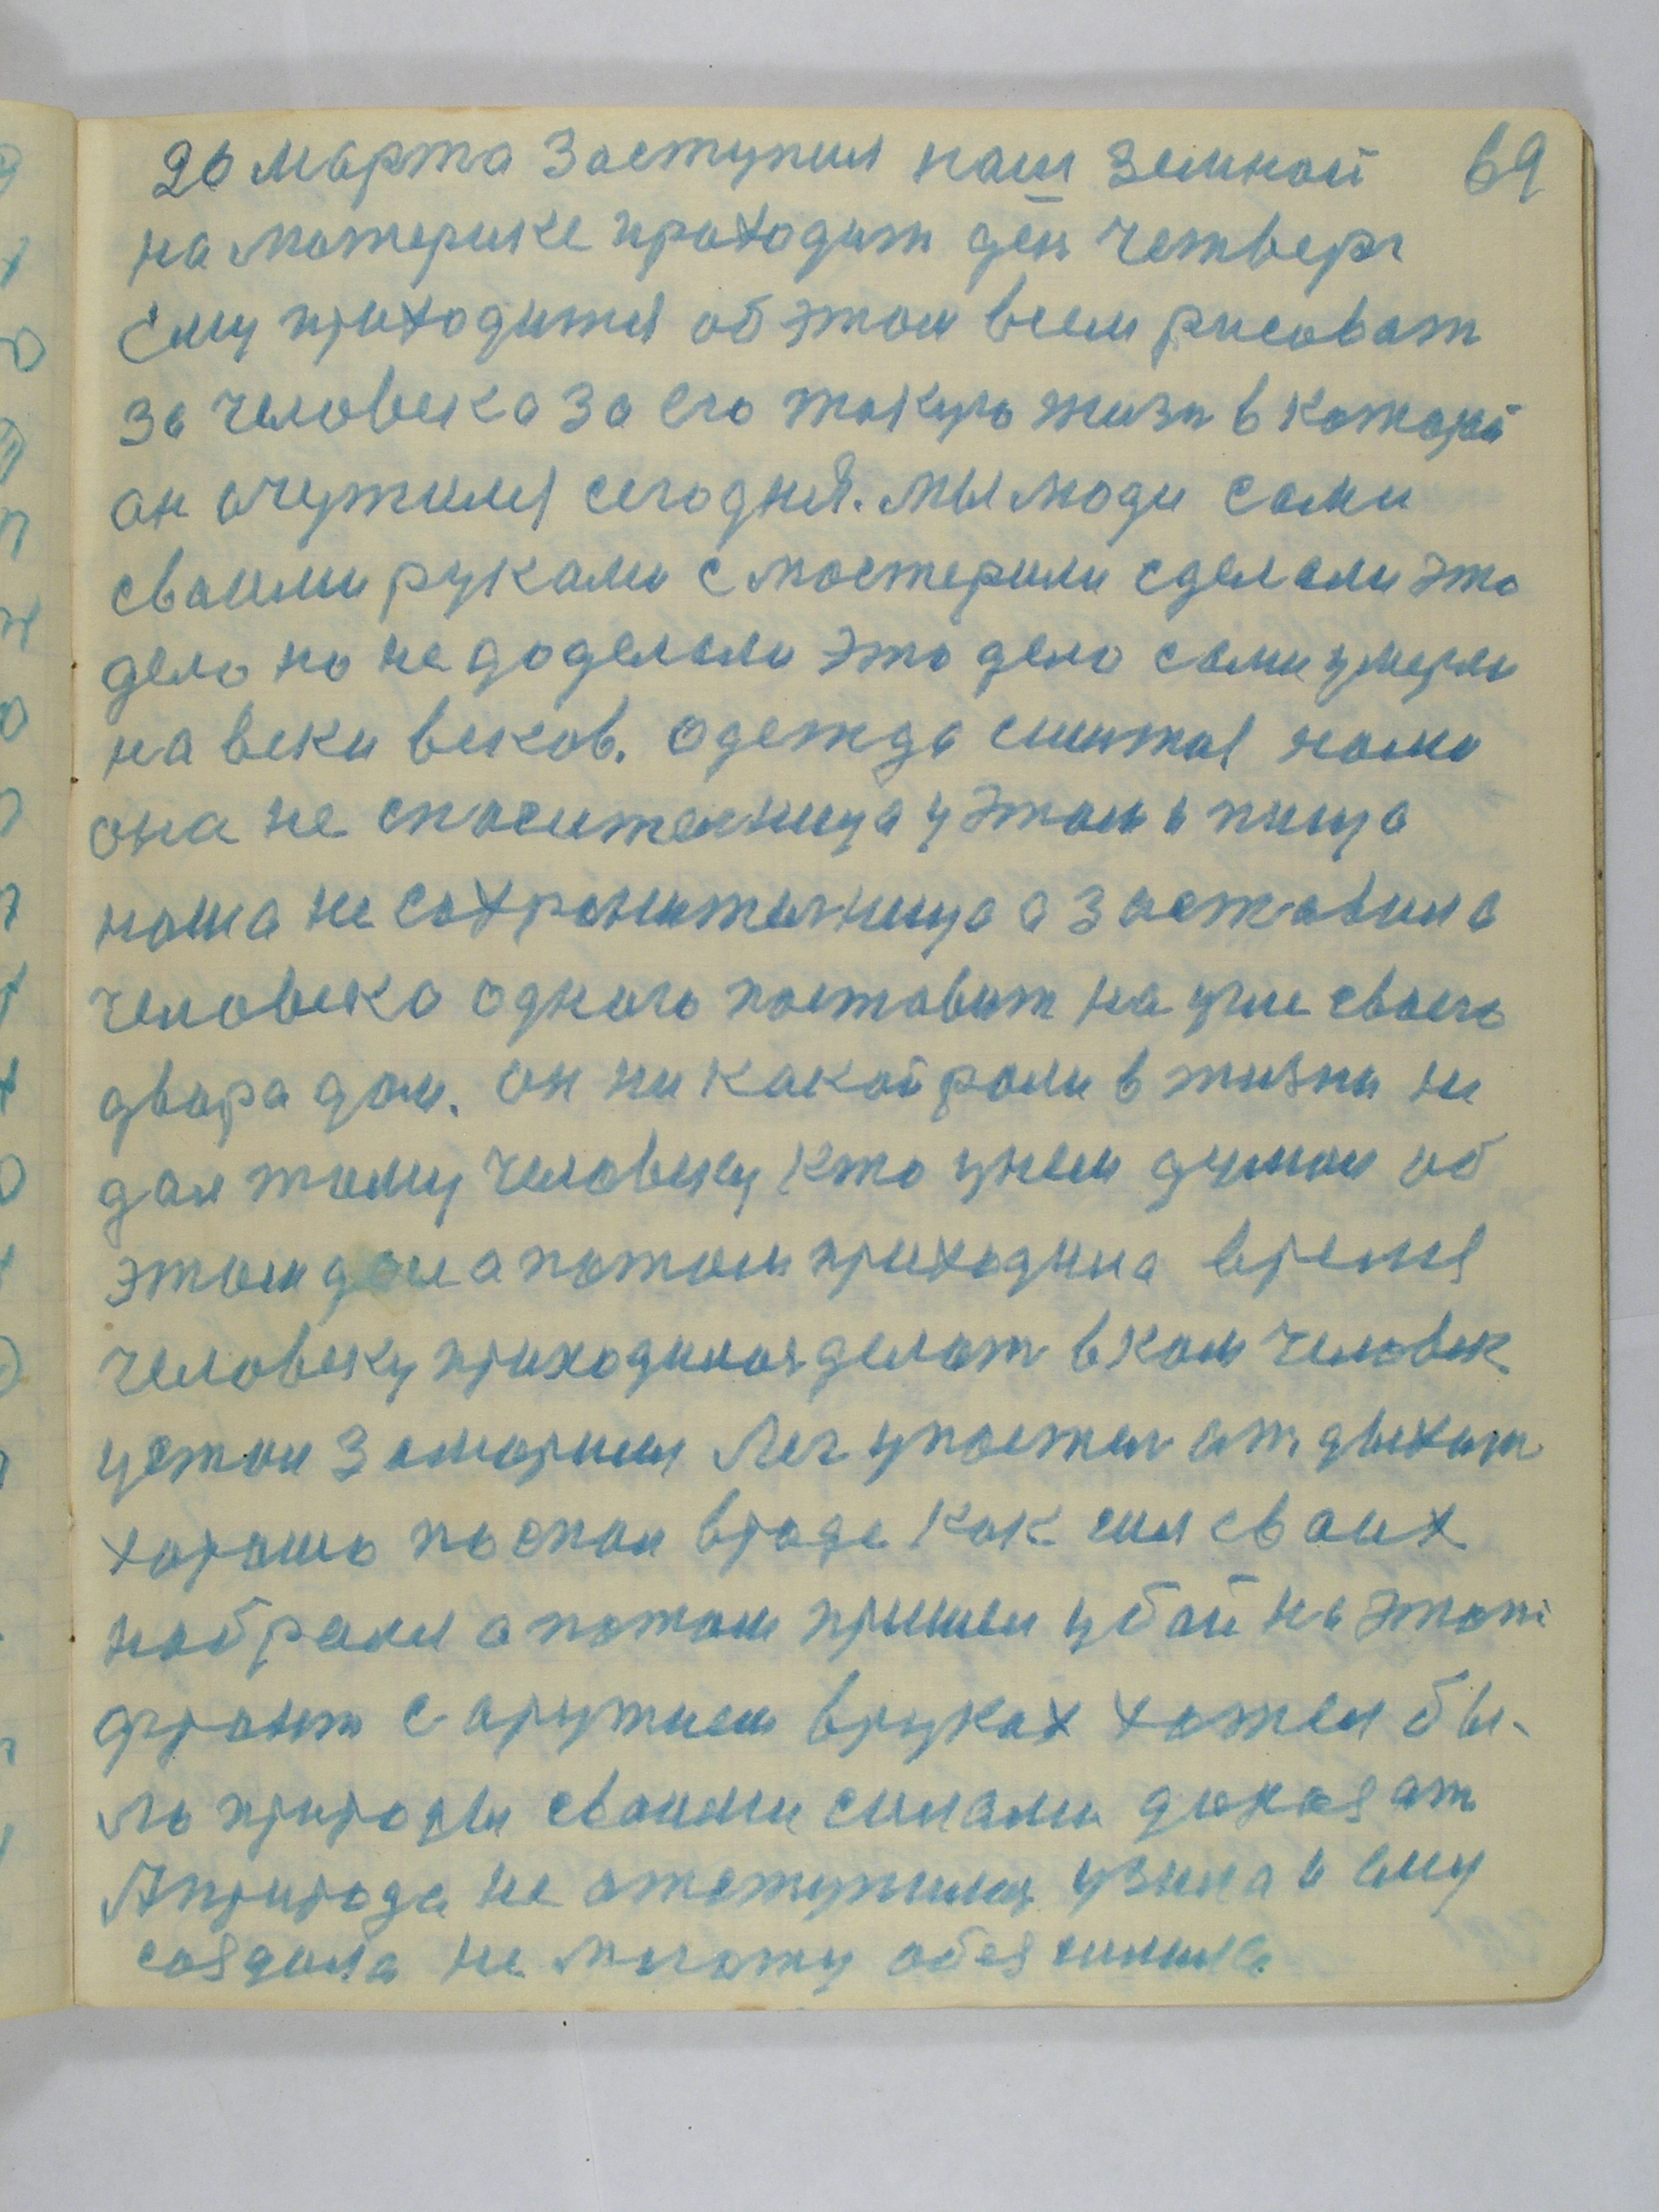 20 Марта Заступил наш Земной 69
на Материке проходит ден четверг
Ему приходится об этом всем рисоват
за человека за его такую жизн в каторай
он очутился сегодня. мы люди сами
своими руками смастерили сделали это
дело но не доделали это дело сами умерли
на веки веков. одежда сшитая нами
она не спасителница у этом и пища
наша не сохранителница а заставила
человека одного поставит на угле своего
двора дом. он ни какой роли в жизни не
дал тому человеку кто у нем думал об
этом доме а потом приходило время
человеку приходилось делат в ком человек
устал Заморился Лег у постел отдыхат
хорошо поспал вроде как сил своих
набрался а потом пришел у бой на этот
фронт с аружием в руках хотел бы-
ло природы своими силами доказат
А природа не отступилась узяла и ему
создала не моготу обезсилила